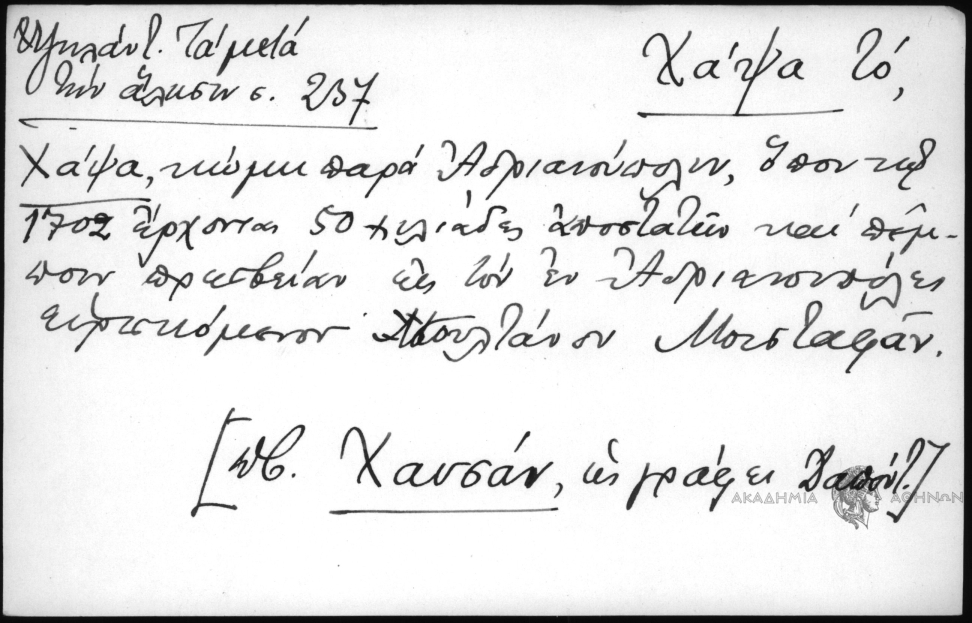 Ὑψηλάντ. Τά μετά
τήν ἅλωσιν σ. 237
Χάψα τό,
Χάψα, κώμη παρά Ἀδριανούπολιν, ὅπου τῷ
1702 ἔρχονται 50 χιλιάδες ἀποστατῶν καί πέμ-
πουν πρεσβείαν εἰς τόν ἐν Ἀδριανουπόλει
εὑρισκόμενον Σουλτάνον Μουσταφᾶν.
[πβ. Χαυσάν, ὡς γράφει Δαπόντ.]
ΑΚΑΔΗΜΙΑ ΑΘΗΝΩΝ